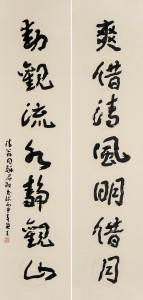 爽借清風明借月
動觀流水靜觀山